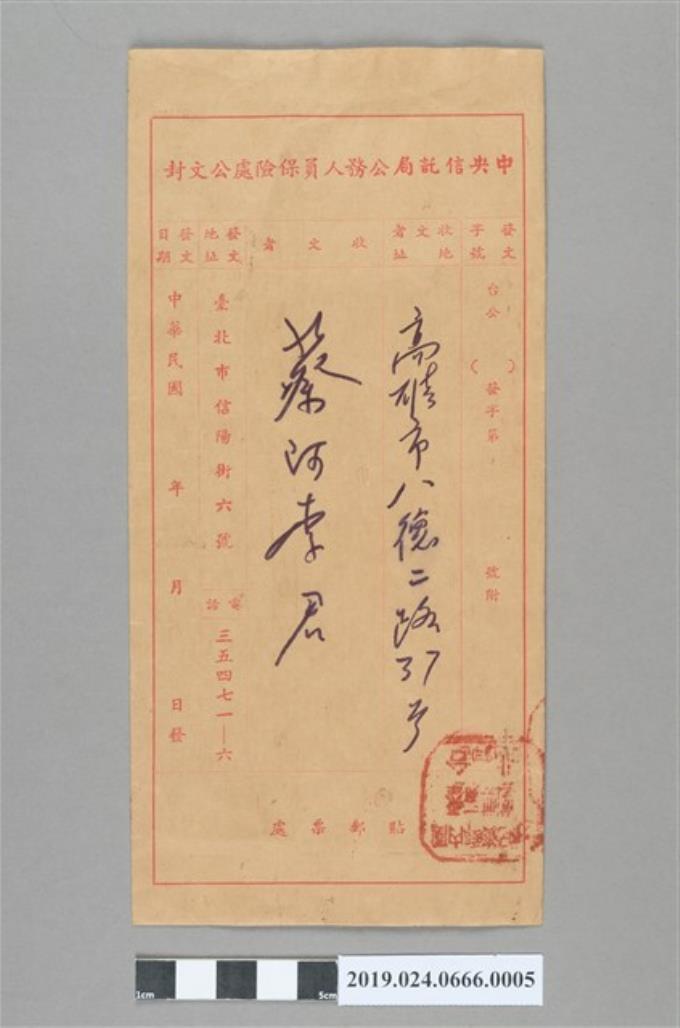 中央信託局公務人員保險處公文封
發文字號
台公 ( ) 發字第 號附
收文者地址
高雄市八德二路37号
收文者
蔡阿李君
發文地址
臺北市信陽街六號
電話
三五四七一—六
發文日期
中華民國 年 月 日發
貼郵票處
國內
台北
1cm
5cm
2019.024.0666.0005